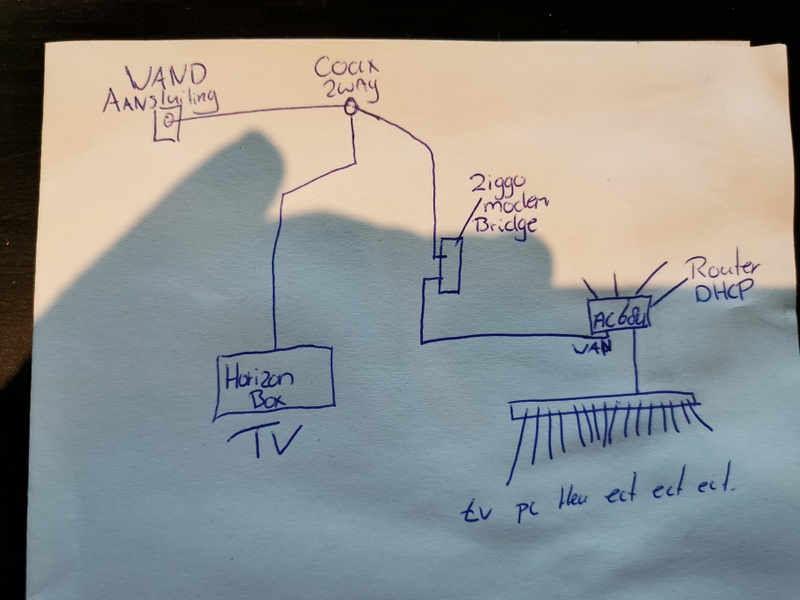 WAND
AANsluiting
Coax
2WAY
Ziggo
modem
Bridge
Router
DHCP
AC68U
WAN
Horizon
Box
TV
tv pc ect ect ect.